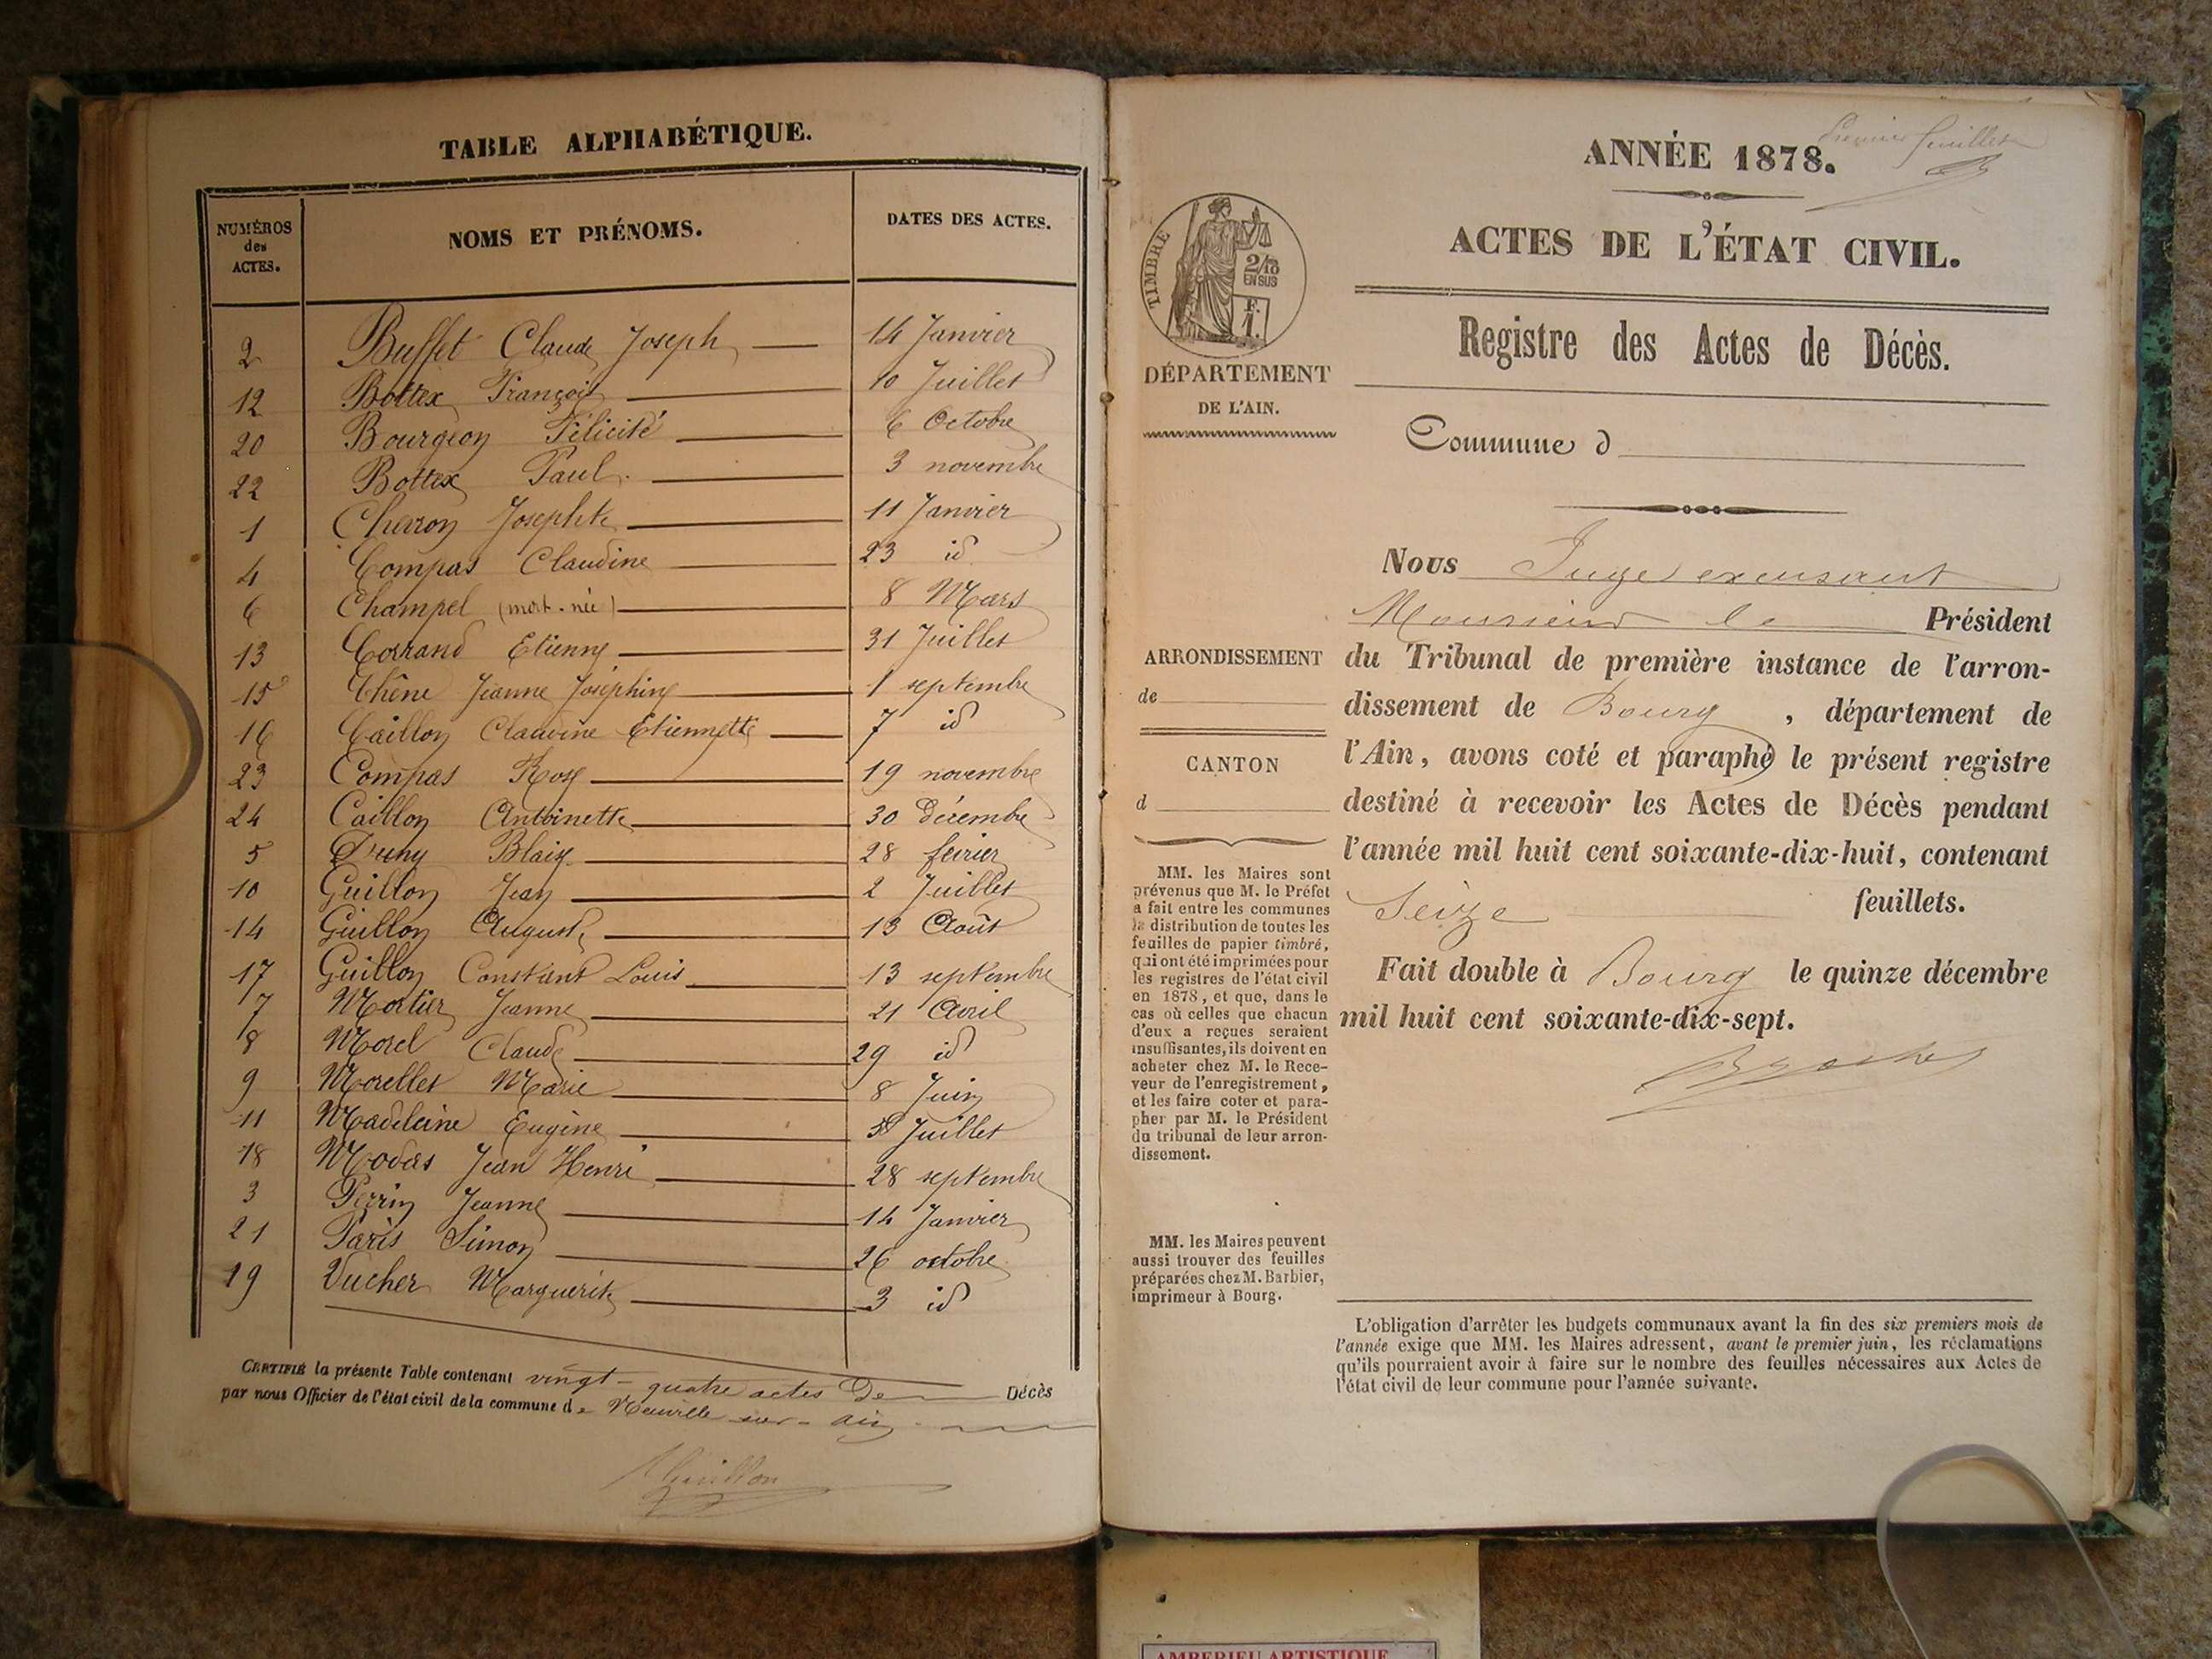 TABLE ALPHABÉTIQUE.
NUMÉROS des ACTES. NOMS ET PRÉNOMS. DATES DES ACTES.
2 Buffet Claude Joseph 14 Janvier
12 Bottex François 10 Juillet
20 Bourgeon Félicité 6 Octobre
22 Bottex Paul 3 novembre
1 Josephte 11 Janvier
4 Compas Claudine 23 id
6 Champel (mort-née) 8 Mars
13 Corrand Etienne 31 Juillet
15 Chêne Jeanne Joséphine 1 septembre
16 Caillon Claudine Etiennette 7 id
23 Compas Rose 19 novembre
24 Caillon Antoinette 30 décembre
5 Blaise 28 février
10 Guillon Jean 2 Juillet
14 Guillon Auguste 13 Août
17 Guillon Constant Louis 13 septembre
7 Mortier Jeanne 21 Avril
8 Morel Claude 29 id
9 Morellet Marie 8 Juin
11 Madeleine Eugène Juillet
18 Modas Jean Henri 28 septembre
3 Perrin Jeanne 14 Janvier
21 Paris Simon 26 octobre
19 Vucher Marguerite 3 id
CERTIFIÉ la présente Table contenant vingt-quatre actes de Décès
par nous Officier de l'état civil de la commune de Neuville sur-ain
Guillon
Premier feuillet
ANNÉE 1878.
ACTES DE L'ÉTAT CIVIL.
Registre des Actes de Décès.
Commune d
TIMBRE
2/10
EN SUS
F.
1.
DÉPARTEMENT
DE L'AIN.
ARRONDISSEMENT
de
CANTON
d
MM. les Maires sont
prévenus que M. le Préfet
a fait entre les communes
la distribution de toutes les
feuilles de papier timbré,
qui ont été imprimées pour
les registres de l'état civil
en 1878, et que, dans le
cas où celles que chacun
d'eux a reçues seraient
insuffisantes, ils doivent en
acheter chez M. le Rece-
veur de l'enregistrement,
et les faire coter et para-
pher par M. le Président
du tribunal de leur arron-
dissement.
MM. les Maires peuvent
aussi trouver des feuilles
préparées chez M. Barbier,
imprimeur à Bourg.
Nous Juge excusant
Monsieur le Président
du Tribunal de première instance de l'arron-
dissement de Bourg, département de
l'Ain, avons coté et paraphé le présent registre
destiné à recevoir les Actes de Décès pendant
l'année mil huit cent soixante-dix-huit, contenant
Seize feuillets.
Fait double à Bourg le quinze décembre
mil huit cent soixante-dix-sept.
L'obligation d'arrêter les budgets communaux avant la fin des six premiers mois de
l'année exige que MM. les Maires adressent, avant le premier juin, les réclamations
qu'ils pourraient avoir à faire sur le nombre des feuilles nécessaires aux Actes de
l'état civil de leur commune pour l'année suivante.
AMBERIEU ARTISTIQUE